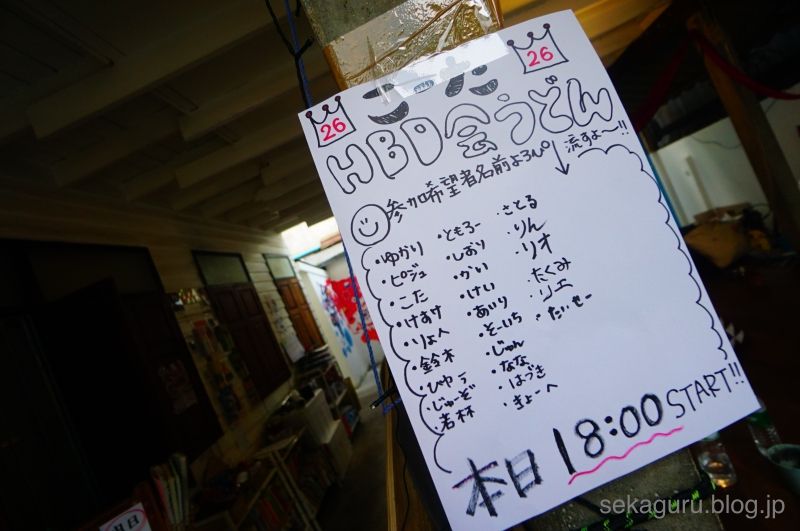 26
26
HBD会うどん
流すよ〜!!
参加希望者名前よろし
・ゆかり
・ピジュ
・こた
・けすけ
・りょへ
・鈴木
・ひやこ
・じゅーぞ
・若林
・ともろー
・しおり
・かい
・けい
・あいり
・そーいち
・じゅん
・なな
・はづき
・きょーへ
・さとる
・りん
・リオ
・たくみ
・リエ
・たいせー
本日18:00START!!
sekaguru.blog.jp